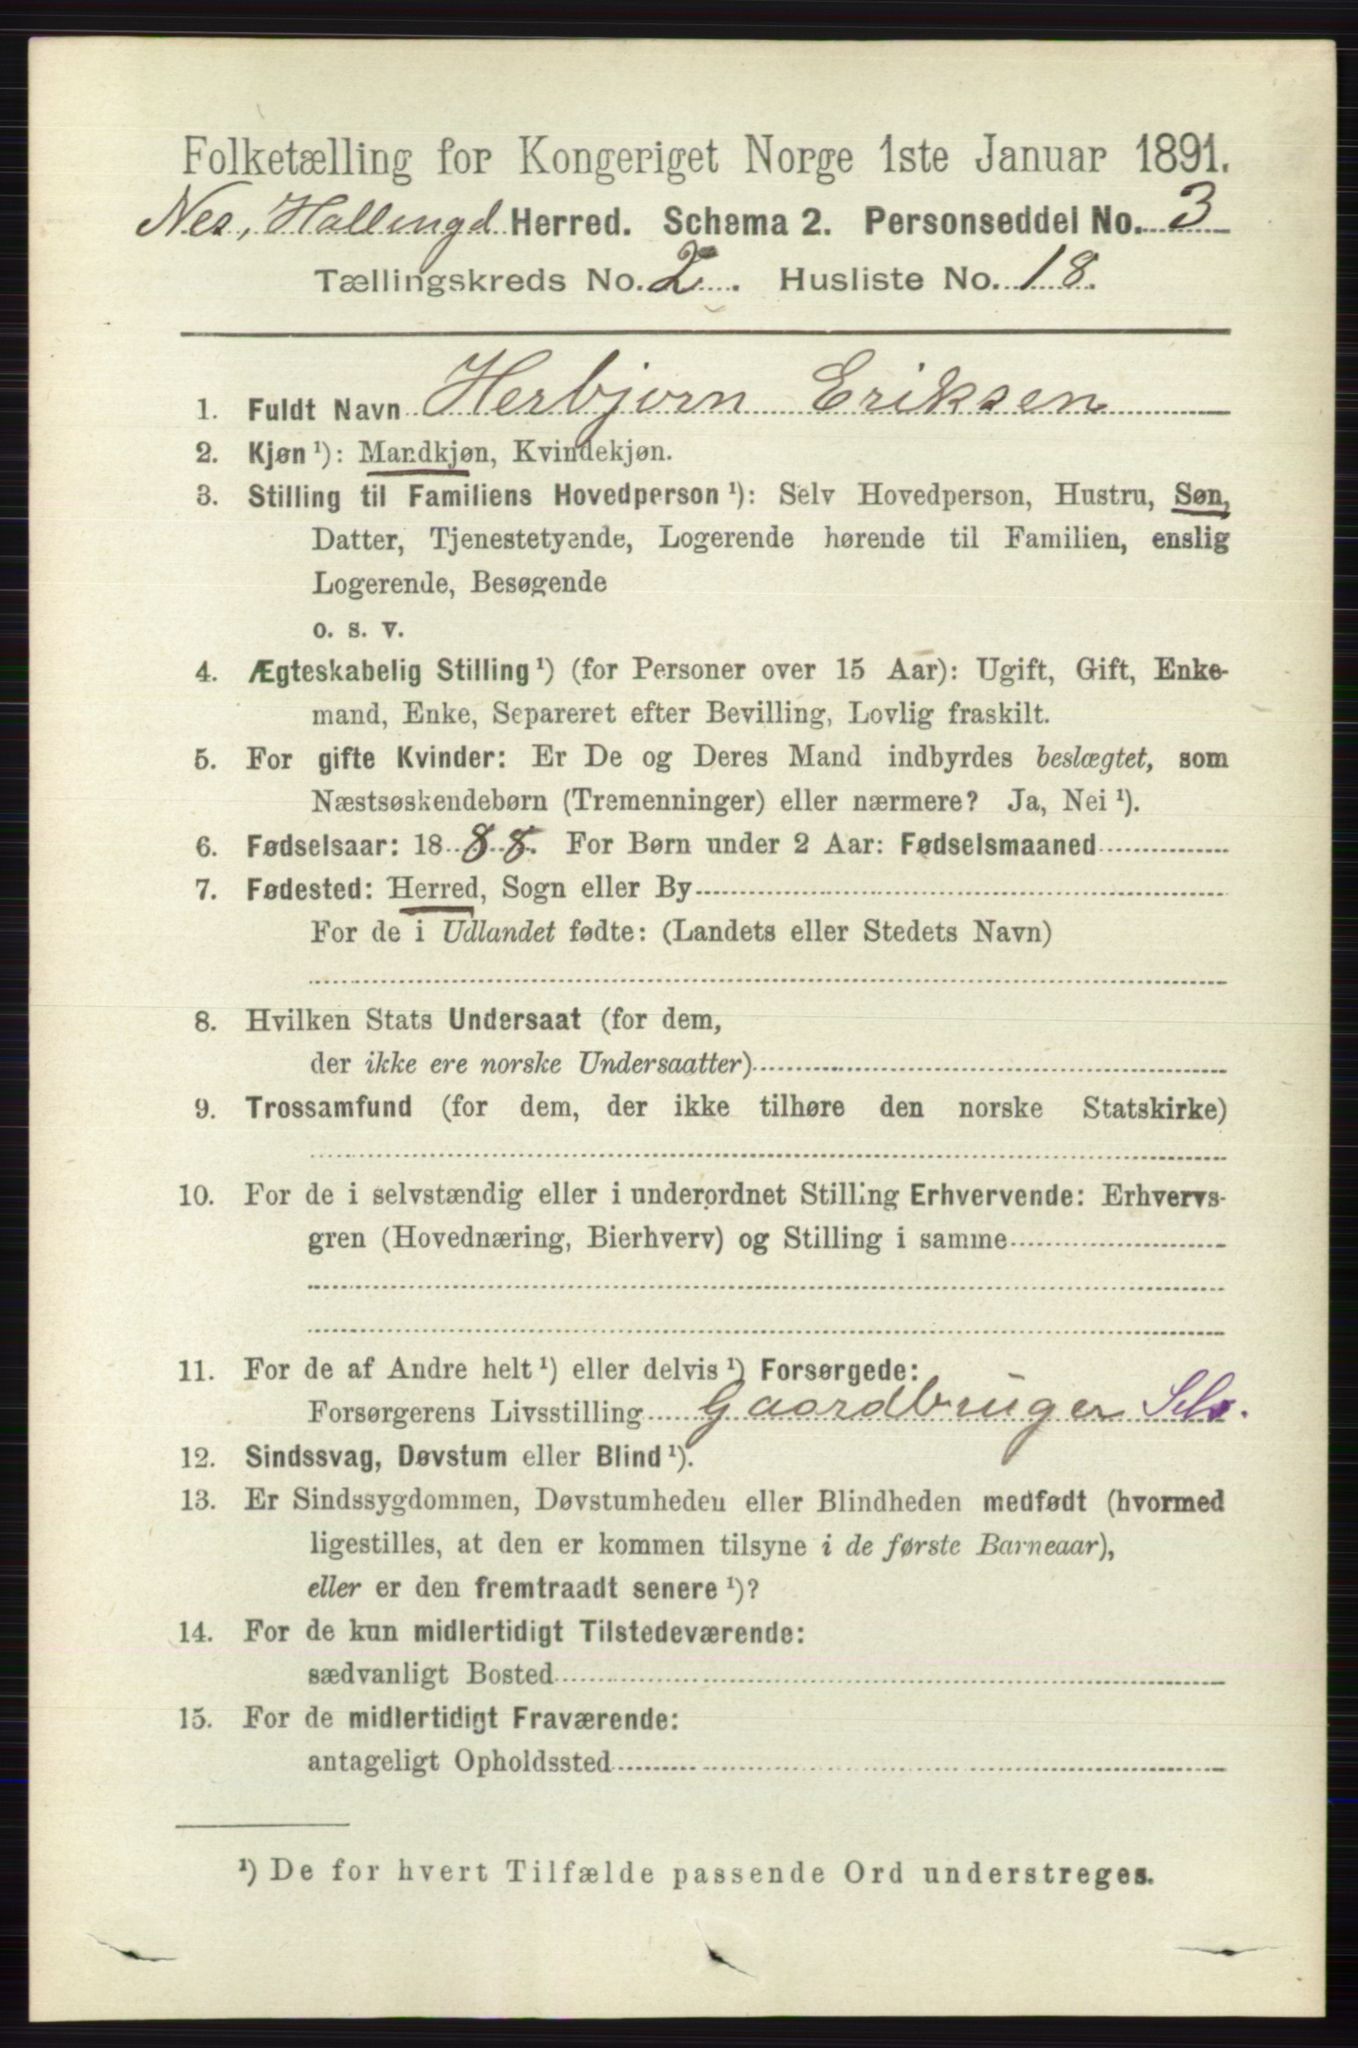 Folketælling for Kongeriget Norge 1ste Januar 1891.
Nes, Hallingd Herred. Schema 2. Personseddel No. 3
Tællingskreds No. 2. Husliste No. 18.
1. Fuldt Navn Herbjorn Eriksen
2. Kjøn ¹): Mandkjøn, Kvindekjøn.
3. Stilling til Familiens Hovedperson ¹): Selv Hovedperson, Hustru, Søn,
Datter, Tjenestetyende, Logerende hørende til Familien, enslig
Logerende, Besøgende
o. s. v.
4. Ægteskabelig Stilling ¹) (for Personer over 15 Aar): Ugift, Gift, Enke-
mand, Enke, Separeret efter Bevilling, Lovlig fraskilt.
5. For gifte Kvinder: Er De og Deres Mand indbyrdes beslægtet, som
Næstsøskendebørn (Tremenninger) eller nærmere? Ja, Nei ¹).
6. Fødselsaar: 1888. For Børn under 2 Aar: Fødselsmaaned
7. Fødested: Herred, Sogn eller By
For de i Udlandet fødte: (Landets eller Stedets Navn)
8. Hvilken Stats Undersaat (for dem,
der ikke ere norske Undersaatter)
9. Trossamfund (for dem, der ikke tilhøre den norske Statskirke)
10. For de i selvstændig eller i underordnet Stilling Erhvervende: Erhvervs-
gren (Hovednæring, Bierhverv) og Stilling i samme
11. For de af Andre helt ¹) eller delvis ¹) Forsørgede:
Forsørgerens Livsstilling Gaardbruger Selv.
12. Sindssvag, Døvstum eller Blind ¹).
13. Er Sindssygdommen, Døvstumheden eller Blindheden medfødt (hvormed
ligestilles, at den er kommen tilsyne i de første Barneaar),
eller er den fremtraadt senere ¹)?
14. For de kun midlertidigt Tilstedeværende:
sædvanligt Bosted
15. For de midlertidigt Fraværende:
antageligt Opholdssted
¹) De for hvert Tilfælde passende Ord understreges.